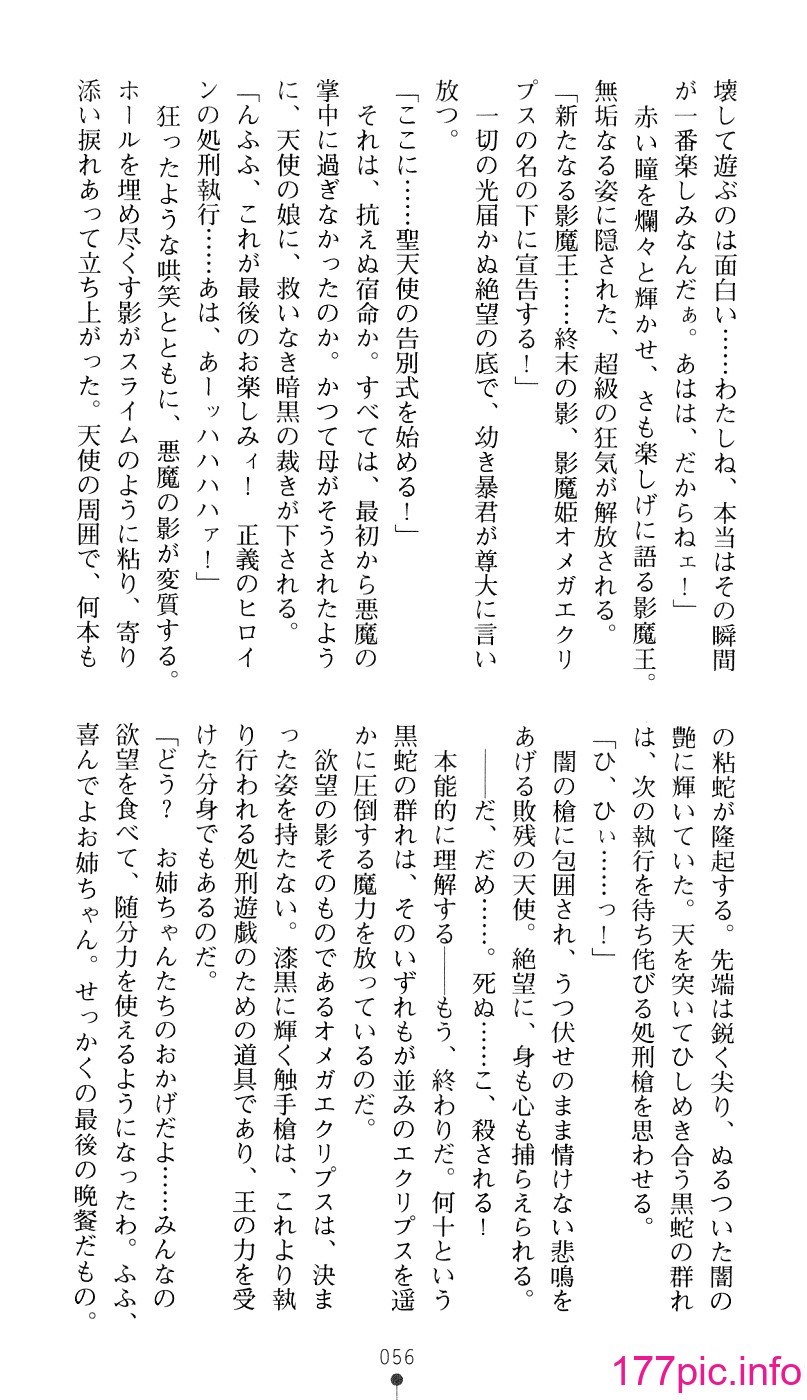 壊して遊ぶのは面白い……わたしね、本当はその瞬間
が一番楽しみなんだぁ。あはは、だからねェ！」
　赤い瞳を爛々と輝かせ、さも楽しげに語る影魔王。
無垢なる姿に隠された、超級の狂気が解放される。
「新たなる影魔王……終末の影、影魔姫オメガエクリ
プスの名の下に宣告する！」
　一切の光届かぬ絶望の底で、幼き暴君が尊大に言い
放つ。
「ここに……聖天使の告別式を始める！」
　それは、抗えぬ宿命か。すべては、最初から悪魔の
掌中に過ぎなかったのか。かつて母がそうされたよう
に、天使の娘に、救いなき暗黒の裁きが下される。
「んふふ、これが最後のお楽しみィ！　正義のヒロイ
ンの処刑執行……あは、あーッハハハハァ！」
　狂ったような哄笑とともに、悪魔の影が変質する。
ホールを埋め尽くす影がスライムのように粘り、寄り
添い捩れあって立ち上がった。天使の周囲で、何本も
の粘蛇が隆起する。先端は鋭く尖り、ぬるついた闇の
艶に輝いていた。天を突いてひしめき合う黒蛇の群れ
は、次の執行を待ち侘びる処刑槍を思わせる。
「ひ、ひぃ……っ！」
　闇の槍に包囲され、うつ伏せのまま情けない悲鳴を
あげる敗残の天使。絶望に、身も心も捕らえられる。
　――だ、だめ……。死ぬ……こ、殺される！
　本能的に理解する――もう、終わりだ。何十という
黒蛇の群れは、そのいずれもが並みのエクリプスを遥
かに圧倒する魔力を放っているのだ。
　欲望の影そのものであるオメガエクリプスは、決ま
った姿を持たない。漆黒に輝く触手槍は、これより執
り行われる処刑遊戯のための道具であり、王の力を受
けた分身でもあるのだ。
「どう？　お姉ちゃんたちのおかげだよ……みんなの
欲望を食べて、随分力を使えるようになったわ。ふふ、
喜んでよお姉ちゃん。せっかくの最後の晩餐だもの。
056
177pic.info